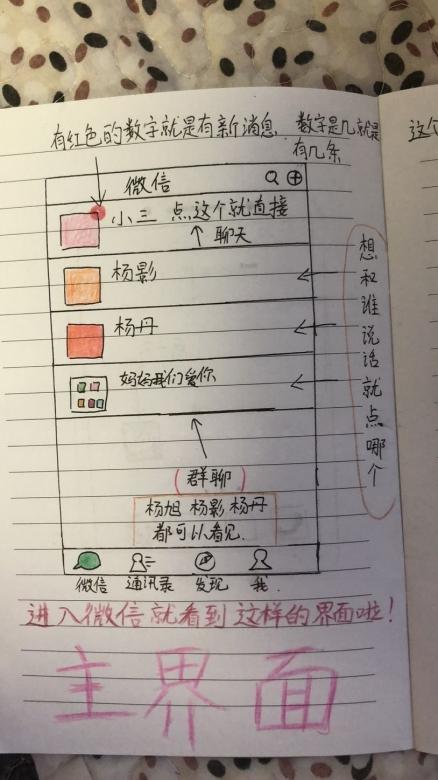 有红色的数字就是有新消息. 数字是几就是
有几条
微信
小三 点这个就直接
聊天
杨影
杨丹
妈妈我们爱你
想和谁说话就点哪个
(群聊)
杨旭 杨影 杨丹
都可以看见.
微信 通讯录 发现 我.
进入微信就看到这样的界面啦!
主界面
这个